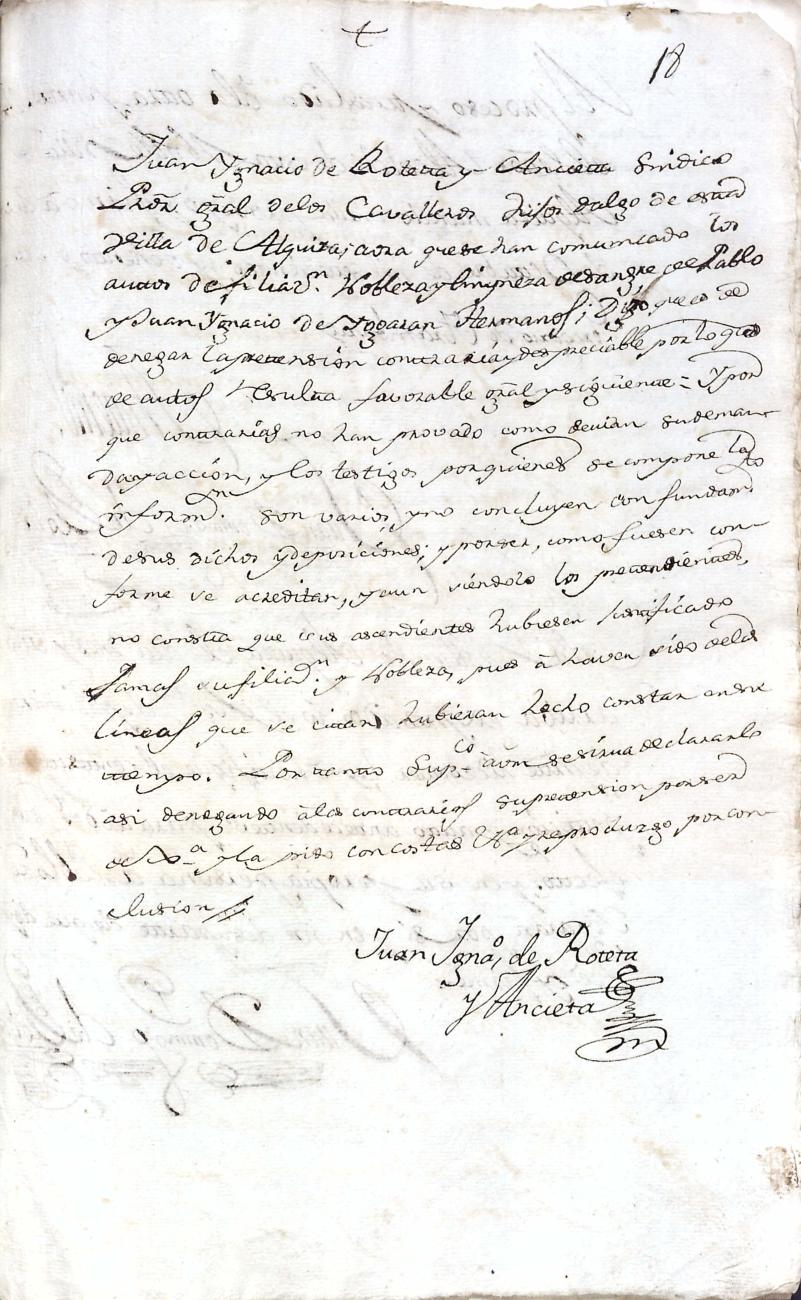 18
Juan Ygnacio de Roteta y Ancieta Sindico
Prōr grāl delos Cavalleros hijos dalgo de esta
Villa de Alquiza, aora que se han comunicado los
autos de filiazn. Nobleza y limpieza de sangre de Pablo
y Juan Ygnacio de Ygaran Hermanos; Digo, que es de
denegar la pretension contraria, y despreciable por lo que
de autos resulta favorable grāl y siguiente = Y por
que contrarias no han provado como devian su deman-
da y acción, y los testigos por quienes se compone la
informn. son varios, y no concluyen con fundamto
de sus dichos y deposiciones; y porser, como fuesen con-
forme se acreditan, y aun siendolo los pretendientes,
no consta que sus ascendientes hubiesen justificado
Jamas su filiazn. y Nobleza, pues à haver sido de las
lineas que se citan hubieran hecho constar en su
tiempo. Por tanto Supco à vm se sirva declararlo
asi denegando à los contrarios su pretension por ser
de Jxa y la pido con costas Vra y reproduzgo por con-
clusion
Juan Ignaº, de Roteta
y Ancieta